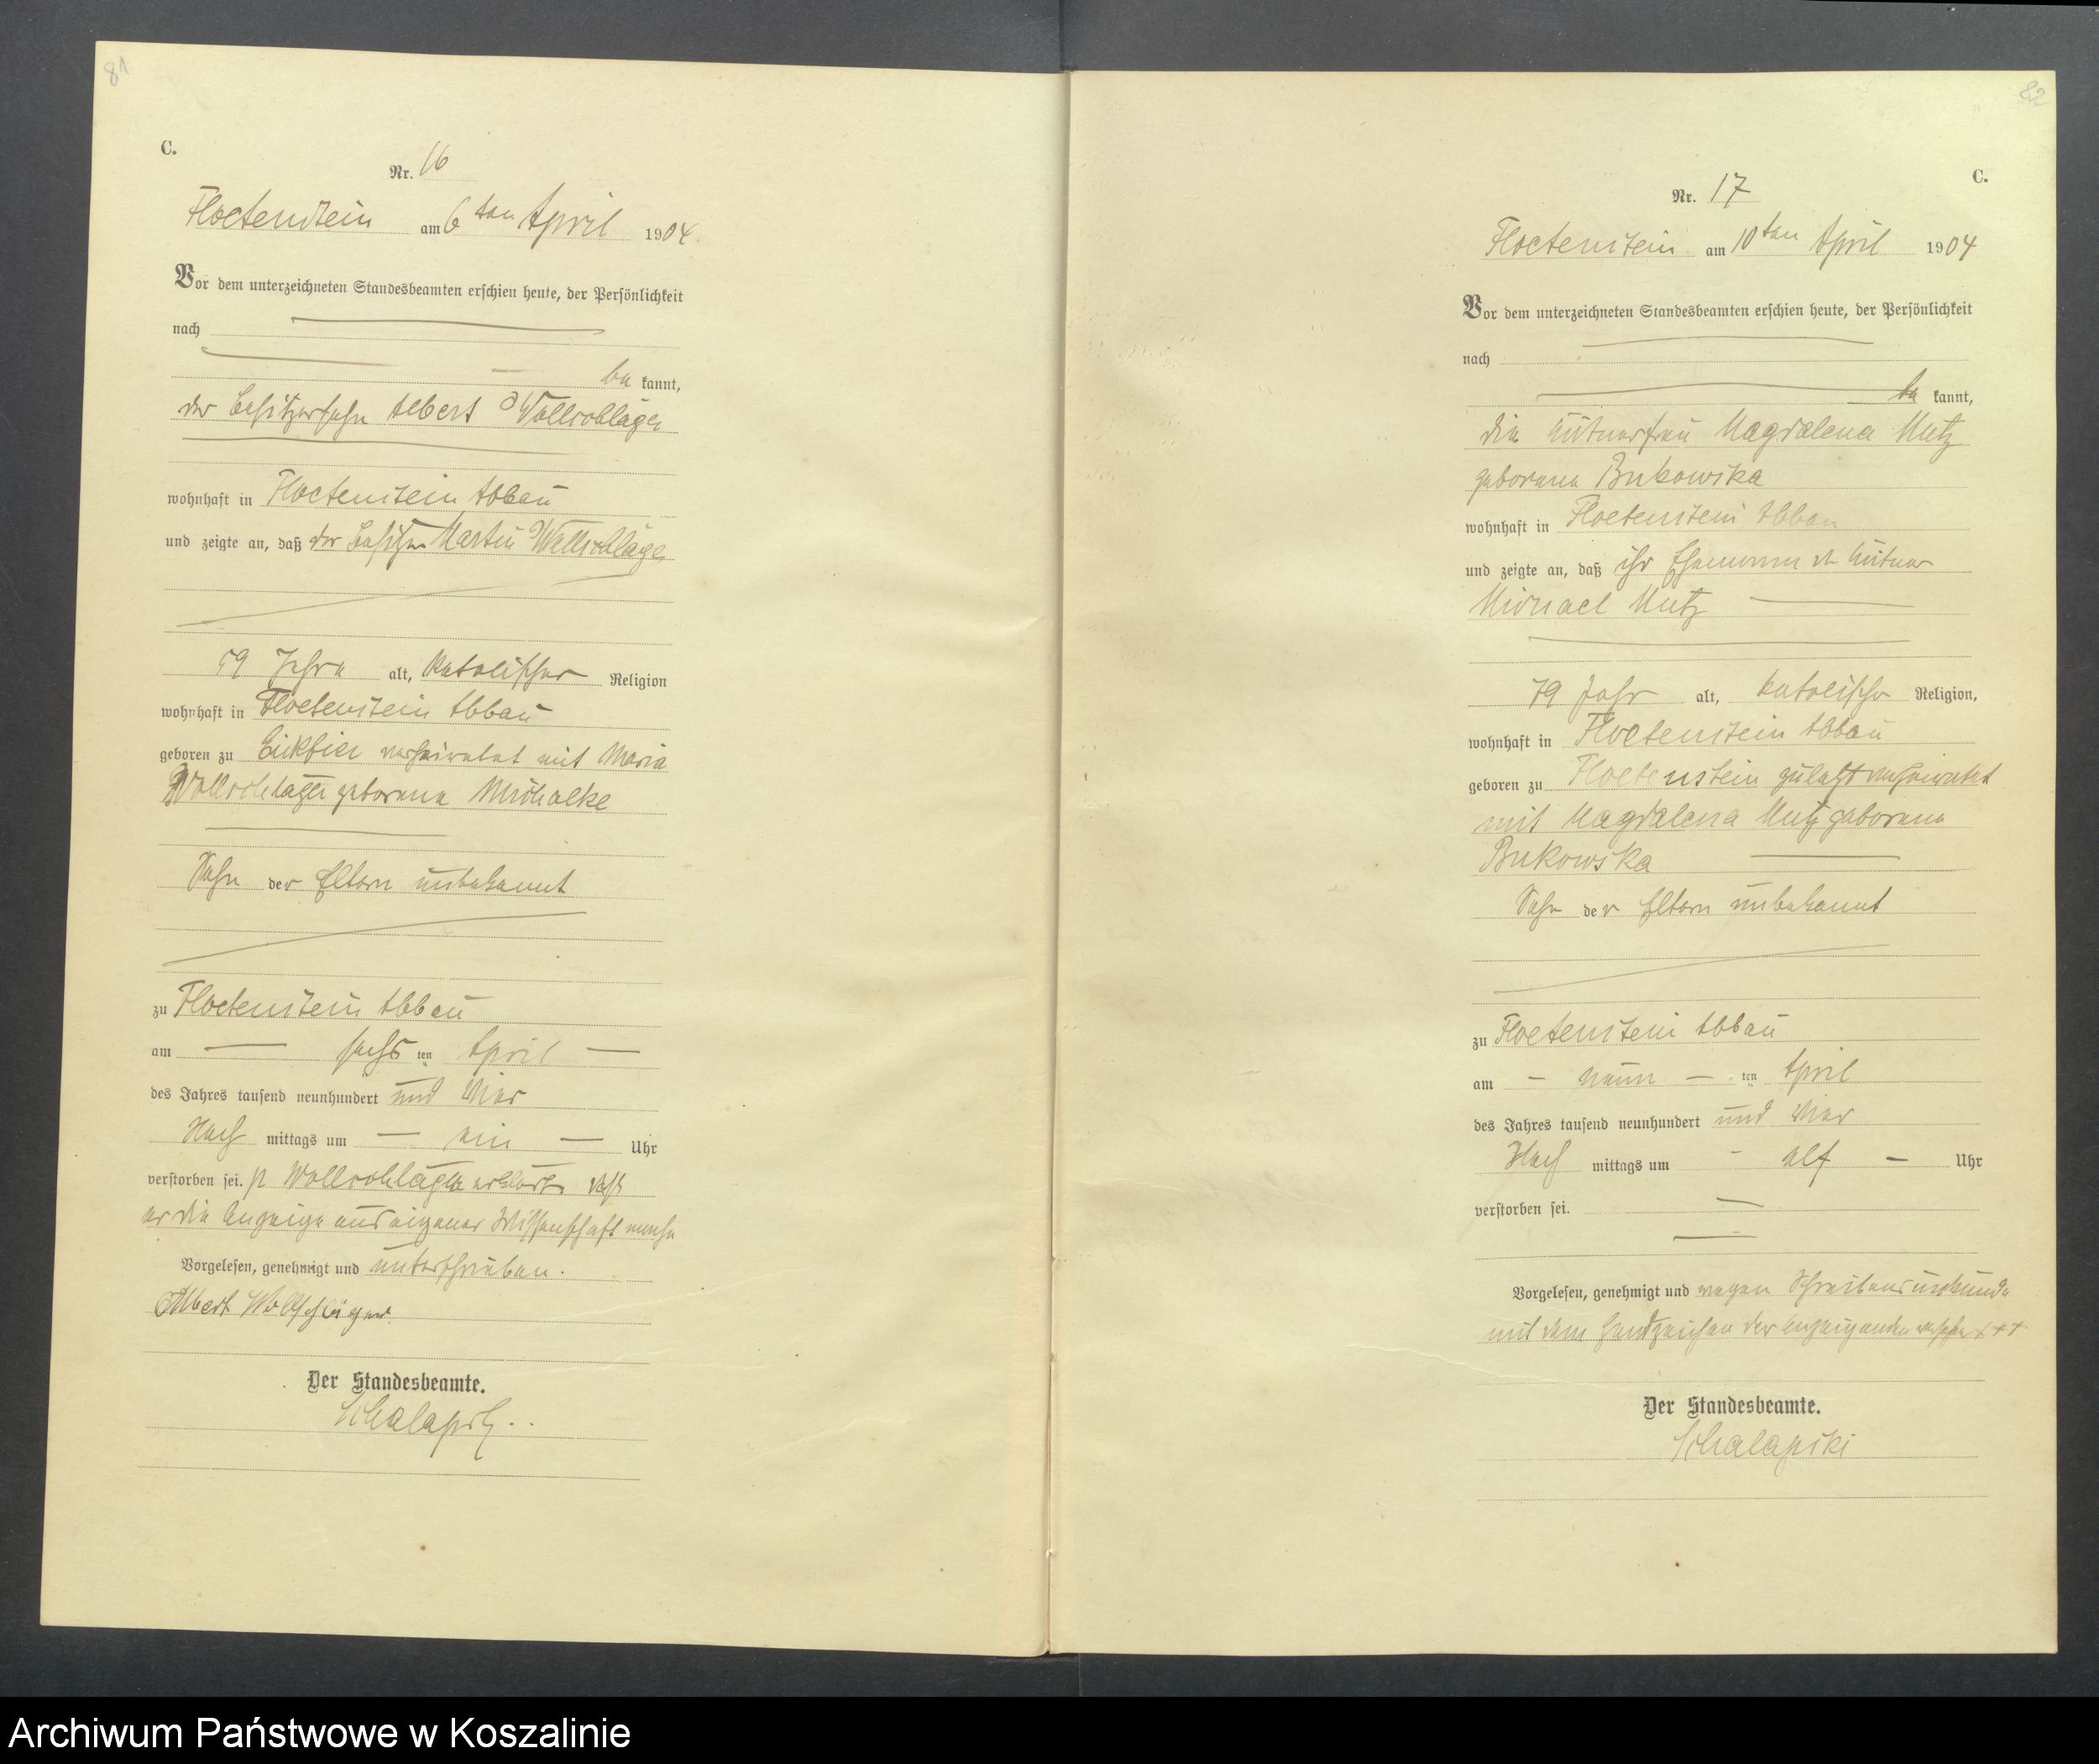 81
C.
Nr. 16
Floetenstein am 6ten April 1904
Vor dem unterzeichneten Standesbeamten erschien heute, der Persönlichkeit
nach
be kannt,
der Besitzersohn Albert Wollschläger
wohnhaft in Floetenstein Abbau
und zeigte an, daß der Besitzer Martin Wollschläger
59 Jahre alt, katolischer Religion
wohnhaft in Floetenstein Abbau
geboren zu Eickfier verheiratet mit Maria
Wollschläger geborene Mischalke
Sohn der Eltern unbekannt
zu Floetenstein Abbau
am sechsten April
des Jahres tausend neunhundert und vier
Nach mittags um ein Uhr
verstorben sei. p Wollschläger erklärte daß
er die Anzeige aus eigener Wissenschaft mache
Vorgelesen, genehmigt und unterschrieben.
Albert Wollschläger
Der Standesbeamte.
Schalapski
82
C.
Nr. 17
Floetenstein am 10ten April 1904
Vor dem unterzeichneten Standesbeamten erschien heute, der Persönlichkeit
nach
be kannt,
die Kütnerfrau Magdalena Mutz
geborene Bukowska
wohnhaft in Floetenstein Abbau
und zeigte an, daß ihr Ehemann der Kütner
Michael Mutz
79 Jahr alt, katolischer Religion,
wohnhaft in Floetenstein Abbau
geboren zu Floetenstein zuletzt verheiratet
mit Magdalena Mutz geborene
Bukowska
Sohn der Eltern unbekannt
zu Floetenstein Abbau
am neun ten April
des Jahres tausend neunhundert und vier
Nach mittags um elf Uhr
verstorben sei.
Vorgelesen, genehmigt und wegen Schreibensunkunde
mit dem Handzeichen der Anzeigenden versehen +++
Der Standesbeamte.
Schalapski
Archiwum Państwowe w Koszalinie